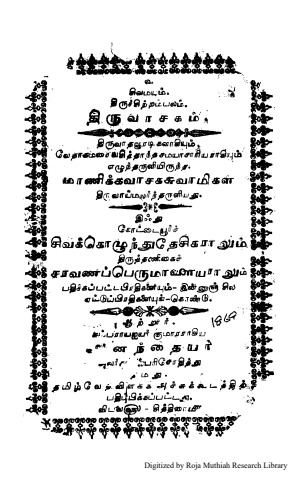 உ
சிவமயம்.
திருச்சிற்றம்பலம்.
திருவாசகம்.
திருவாதவூரடிகளாகியும்,
எழுந்தருளியிருந்த
மாணிக்கவாசகசுவாமிகள்
திருவாய்மலர்ந்தருளியது.
இஃது
கோட்டையூர்ச்
சிவக்கொழுந்துதேசிகராலும்
திருத்தணிகைச்
சரவணப்பெருமாளையராலும்
பதிக்கப்பட்டபிரதிகளையும்-இன்னுஞ்சில
ஏட்டுப்பிரதிகளையுங்-கொண்டு,
1869
குமாரராகிய
பரிசோதித்து
தமிழ்வேதவிளக்க அச்சுக்கூடத்திற்
பதிப்பிக்கப்பட்டது.
சித்திரைமீ
Digitized by Roja Muthiah Research Library